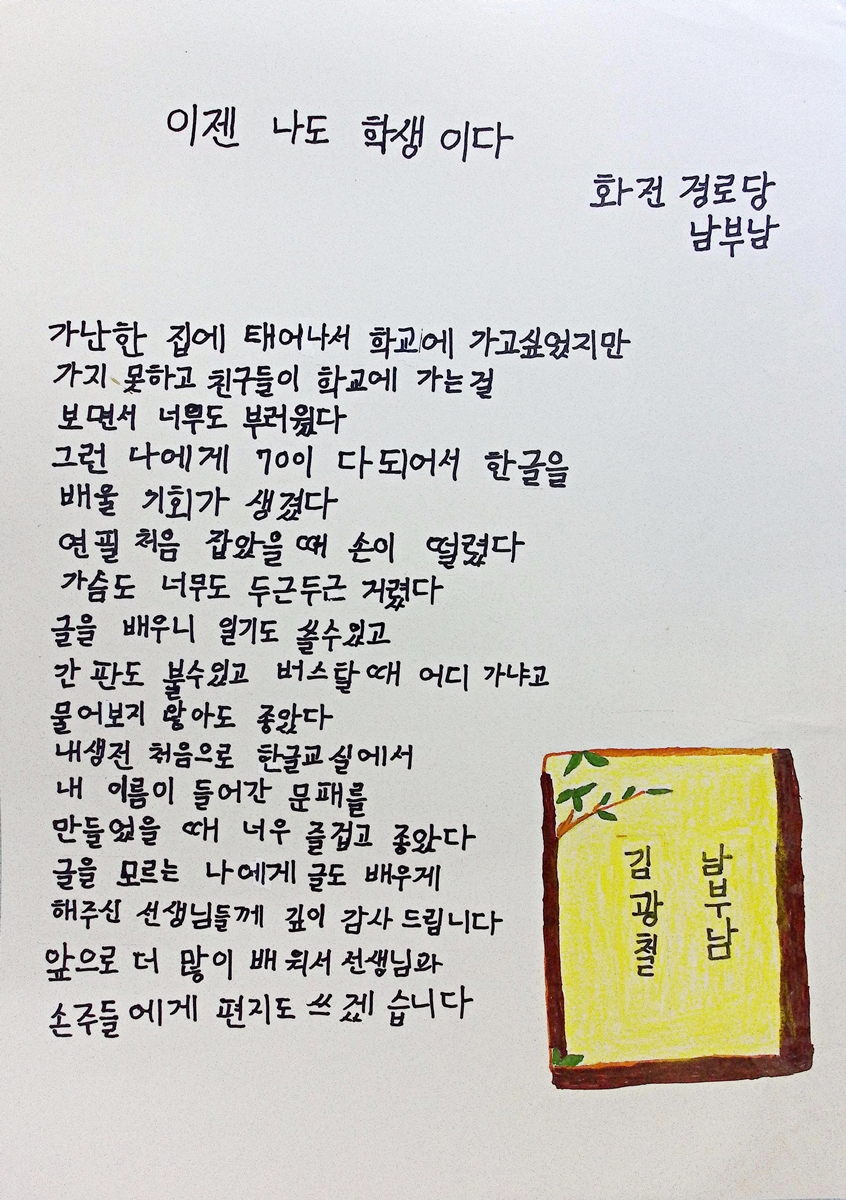 이젠 나도 학생 이다
화전 경로당
남부남
가난한 집에 태어나서 학교에 가고싶었지만
가지 못하고 친구들이 학교에 가는걸
보면서 너무도 부러웠다
그런 나에게 70이 다되어서 한글을
배울 기회가 생겼다
연필 처음 잡았을때 손이 떨렸다
가슴도 너무도 두근두근 거렸다
글을 배우니 일기도 쓸수있고
간판도 볼수있고 버스탈때 어디 가냐고
물어보지 않아도 좋았다
내생전 처음으로 한글교실에서
내 이름이 들어간 문패를
만들었을 때 너무 즐겁고 좋았다
글을 모르는 나에게 글도 배우게
해주신 선생님들께 깊이 감사드립니다
앞으로 더 많이 배워서 선생님과
손주들에게 편지도 쓰겠습니다
남부남
김광철